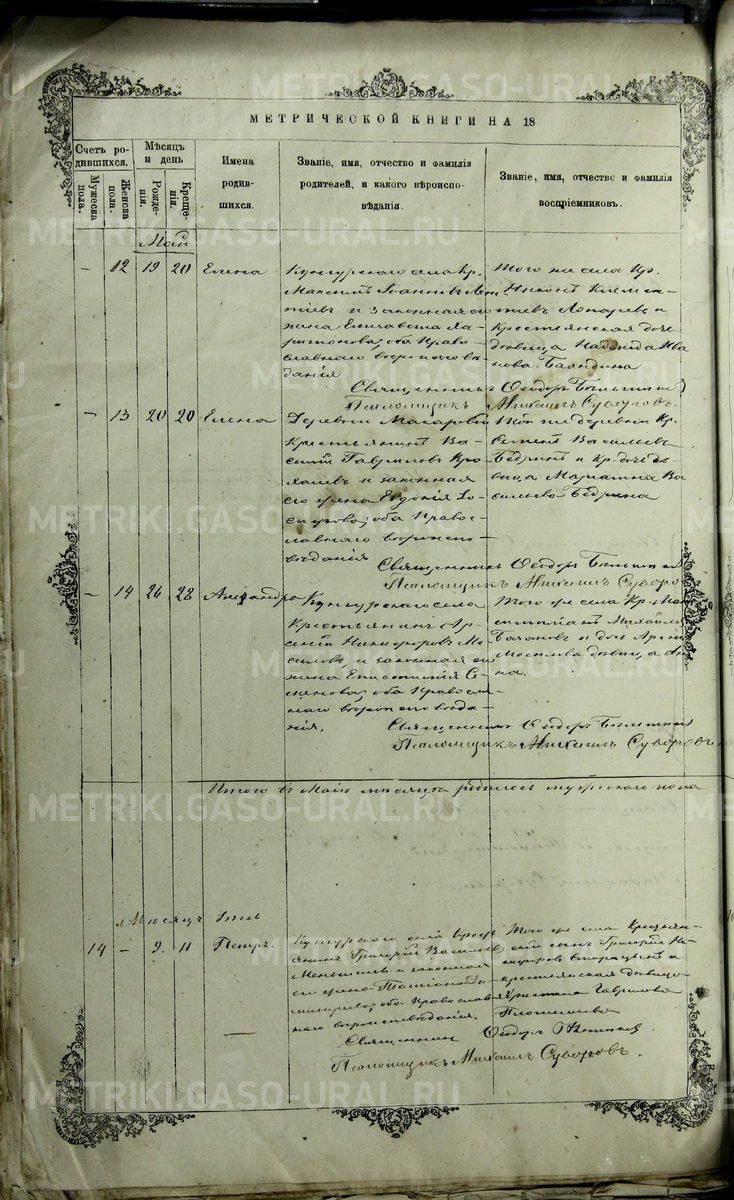 МЕТРИЧЕСКОЙ КНИГИ НА 18
Счетъ ро-
дившихся.
Мужеска
пола.
Женска
пола.
Мѣсяцъ
и день
Рожде-
нія.
Креще-
нія.
Имена
родив-
шихся.
Званіе, имя, отчество и фамилія
родителей, и какого вѣроиспо-
вѣданія.
Званіе, имя, отчество и фамилія
воспріемниковъ.
Май
— 12 19 20 Елена
Кунгурского села Кр.
Максимъ Іоанновъ
и законная его
жена Елисавета Ла-
ріонова, оба Право-
славнаго вѣроиспове-
данія
Того же села Кр.
Никонъ Климен-
тіевъ и
крестьянская дочь
дѣвица Надежда Ива
нова
Священникъ Феодоръ
Псаломщикъ Михаилъ Суворовъ.
— 13 20 20 Елена
Деревни Макаровой
Крестьянинъ Ва-
силій Гавриловъ
и законная
его жена Евдокія
оба Право-
славнаго вѣроиспо-
вѣданія
Той же деревни Кр.
Семенъ Васильевъ
Бѣдринъ и кр. дочь дѣ-
вица Маріанна Ва
сильева Бѣдрина
Священникъ Феодоръ
Псаломщикъ Михаилъ Суворо
— 14 26 28 Александра
Кунгурскаго села
Крестьянинъ Ар-
сеній Никифоровъ Мо-
силовъ, и законная его
жена Епистимія Се-
менова, оба Правосла-
внаго вѣроисповѣда-
нія,
Того же села Кр.
Михайловъ
Бахановъ и дочь Арсенія
Мосилова дѣвица Ан-
на.
Священникъ Феодоръ
Псаломщикъ Михаилъ Суворовъ
Итого въ Маѣ мѣсяцѣ родилось мужескаго пола
Мѣсяцъ Іюнь
14 — 9 11 Петръ.
Кунгурскаго села Кресть
янинъ Григорій Васильев
Меньшиковъ и законная
его жена Татіана Ди-
митріева, оба Православ
наго вѣроисповѣданія.
Того же села Крестьян-
скій сынъ Григорій Ни-
кифоровъ и
крестьянская дѣвица
Христина Гаврилова
Плотникова
Священникъ Феодоръ
Псаломщикъ Михаилъ Суворовъ.
METRIKI.GASO-URAL.RU